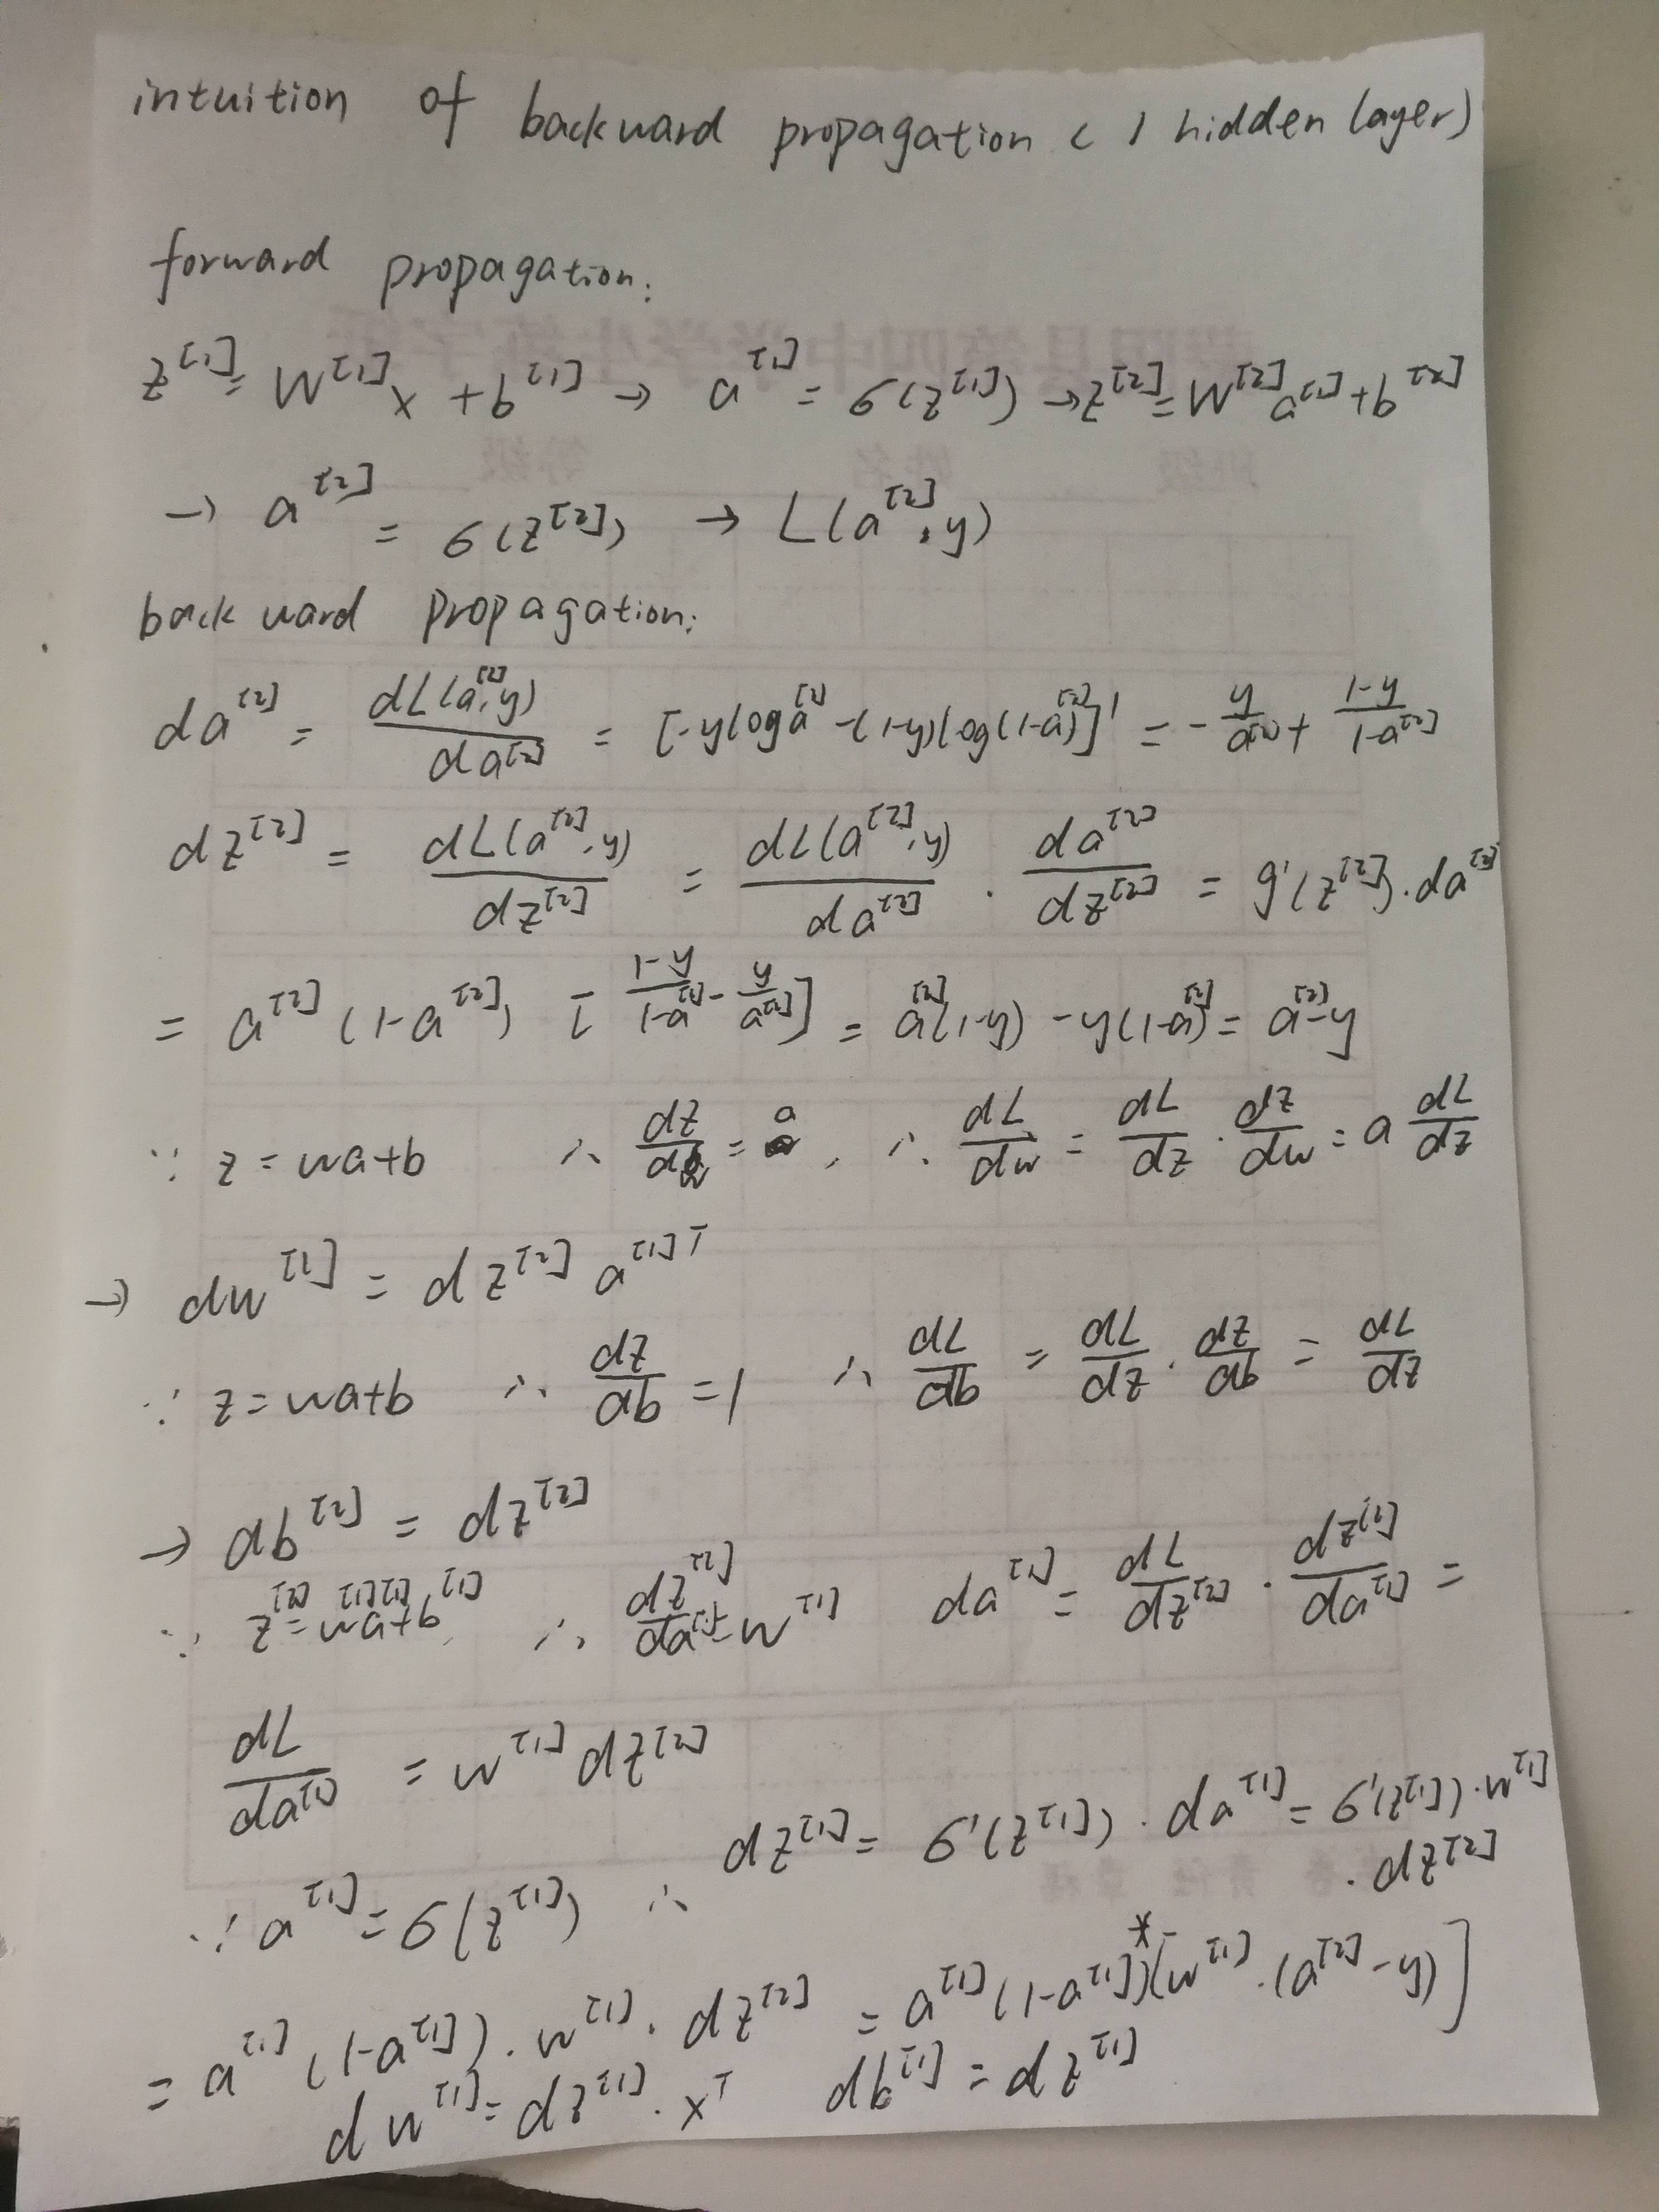 intuition of backward propagation ( 1 hidden layer)
forward propagation:
z^[1] = W^[1]x + b^[1] → a^[1] = σ(z^[1]) → z^[2] = W^[2]a^[1] + b^[2]
→ a^[2] = σ(z^[2]) → L(a^[2], y)
backward propagation:
da^[2] = dL(a^[2], y)/da^[2] = [-ylog a^[2] -(1-y)log(1-a^[2])]' = -y/a^[2] + (1-y)/(1-a^[2])
dz^[2] = dL(a^[2], y)/dz^[2] = dL(a^[2], y)/da^[2] · da^[2]/dz^[2] = g'(z^[2]) · da^[2]
= a^[2](1-a^[2]) [(1-y)/(1-a^[2]) - y/a^[2]] = a^[2](1-y) - y(1-a^[2]) = a^[2]-y
∵ z = wa+b ∴ dz/dw = a, ∴ dL/dw = dL/dz · dz/dw = a dL/dz
→ dw^[2] = dz^[2] a^[1]T
∵ z = wa+b ∴ dz/db = 1 ∴ dL/db = dL/dz · dz/db = dL/dz
→ db^[2] = dz^[2]
∵ z^[2] = w^[1]a^[1]+b^[1] ∴ dz^[2]/da^[1] = w^[1] da^[1] = dL/dz^[2] · dz^[2]/da^[1] =
dL/da^[1] = w^[1] dz^[2]
∵ a^[1] = σ(z^[1]) ∴ dz^[1] = σ'(z^[1]) · da^[1] = σ'(z^[1]) · w^[1]
· dz^[2]
= a^[1](1-a^[1]) · w^[1] · dz^[2] = a^[1](1-a^[1]) * [w^[1] · (a^[2]-y)]
dw^[1] = dz^[1] · x^T db^[1] = dz^[1]